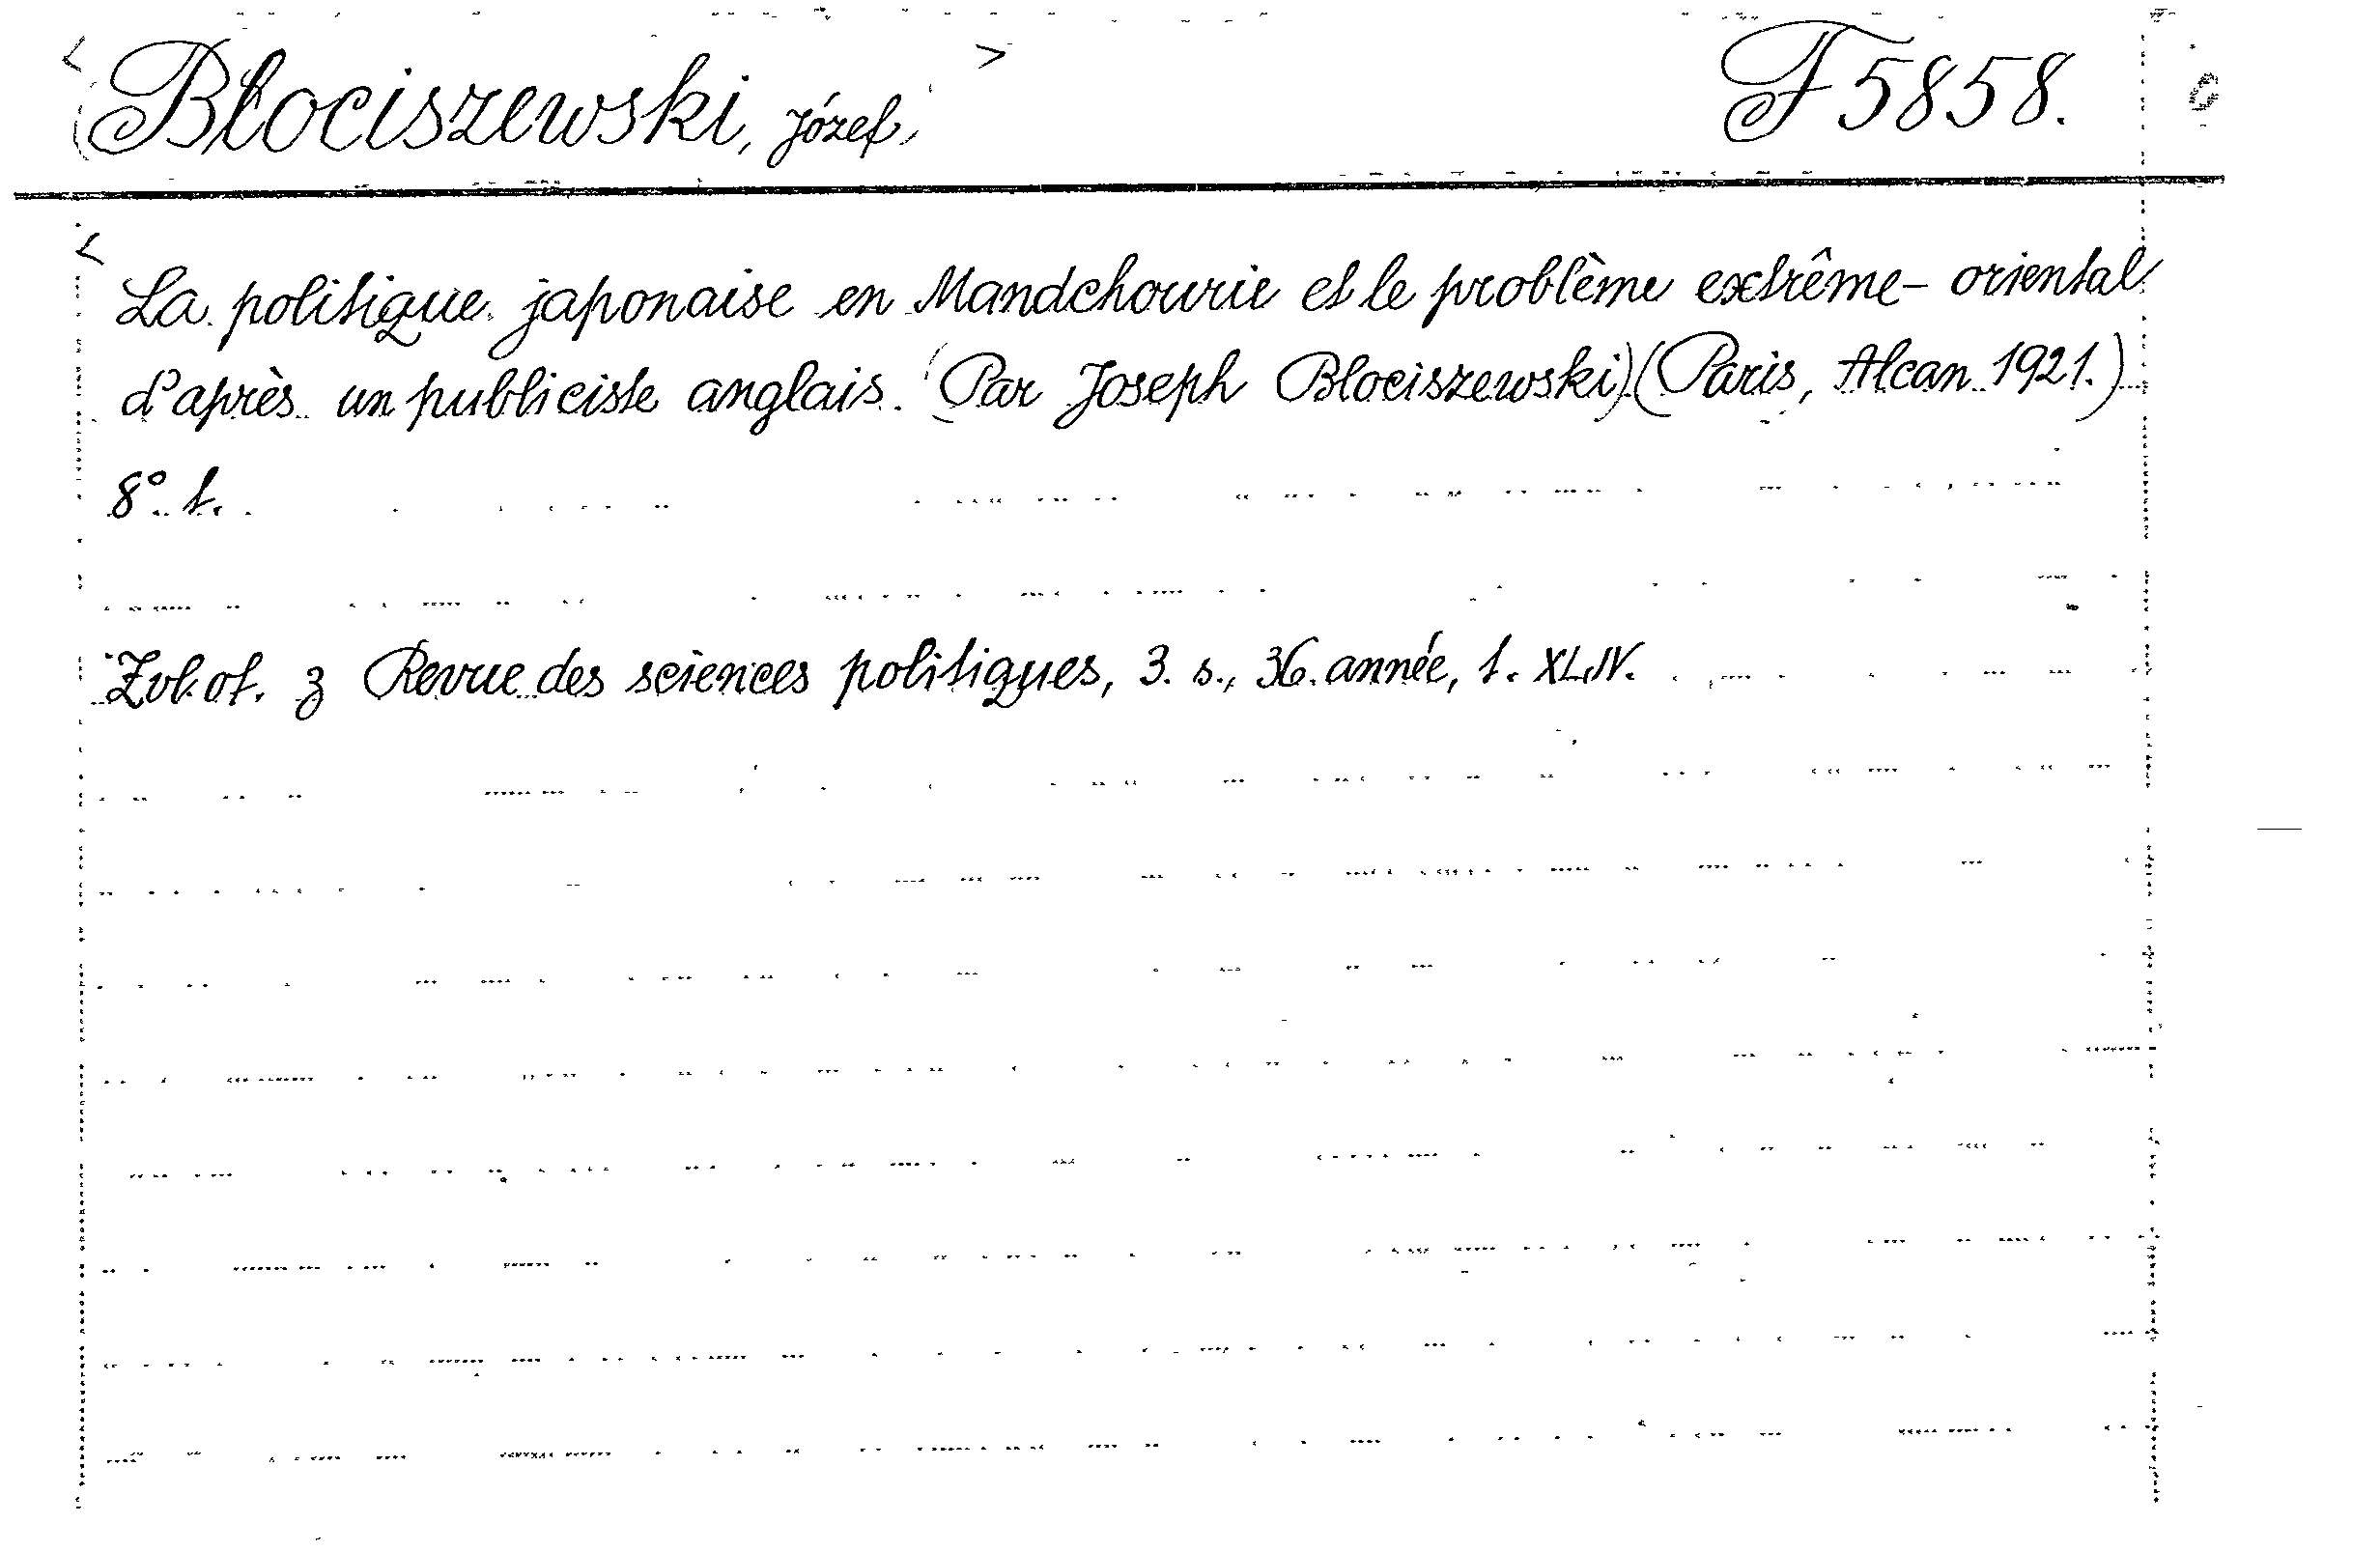 < Błociszewski, Józef, > F 5858.
< La politique japonaise en Mandchourie et le problème extrême-oriental
d'après un publiciste anglais. (Par Joseph Blociszewski) (Paris, Alcan 1921.)
8° t.
Zvl. ot. z Revue des sciences politiques, 3. s., 36. année, t. XLIV.